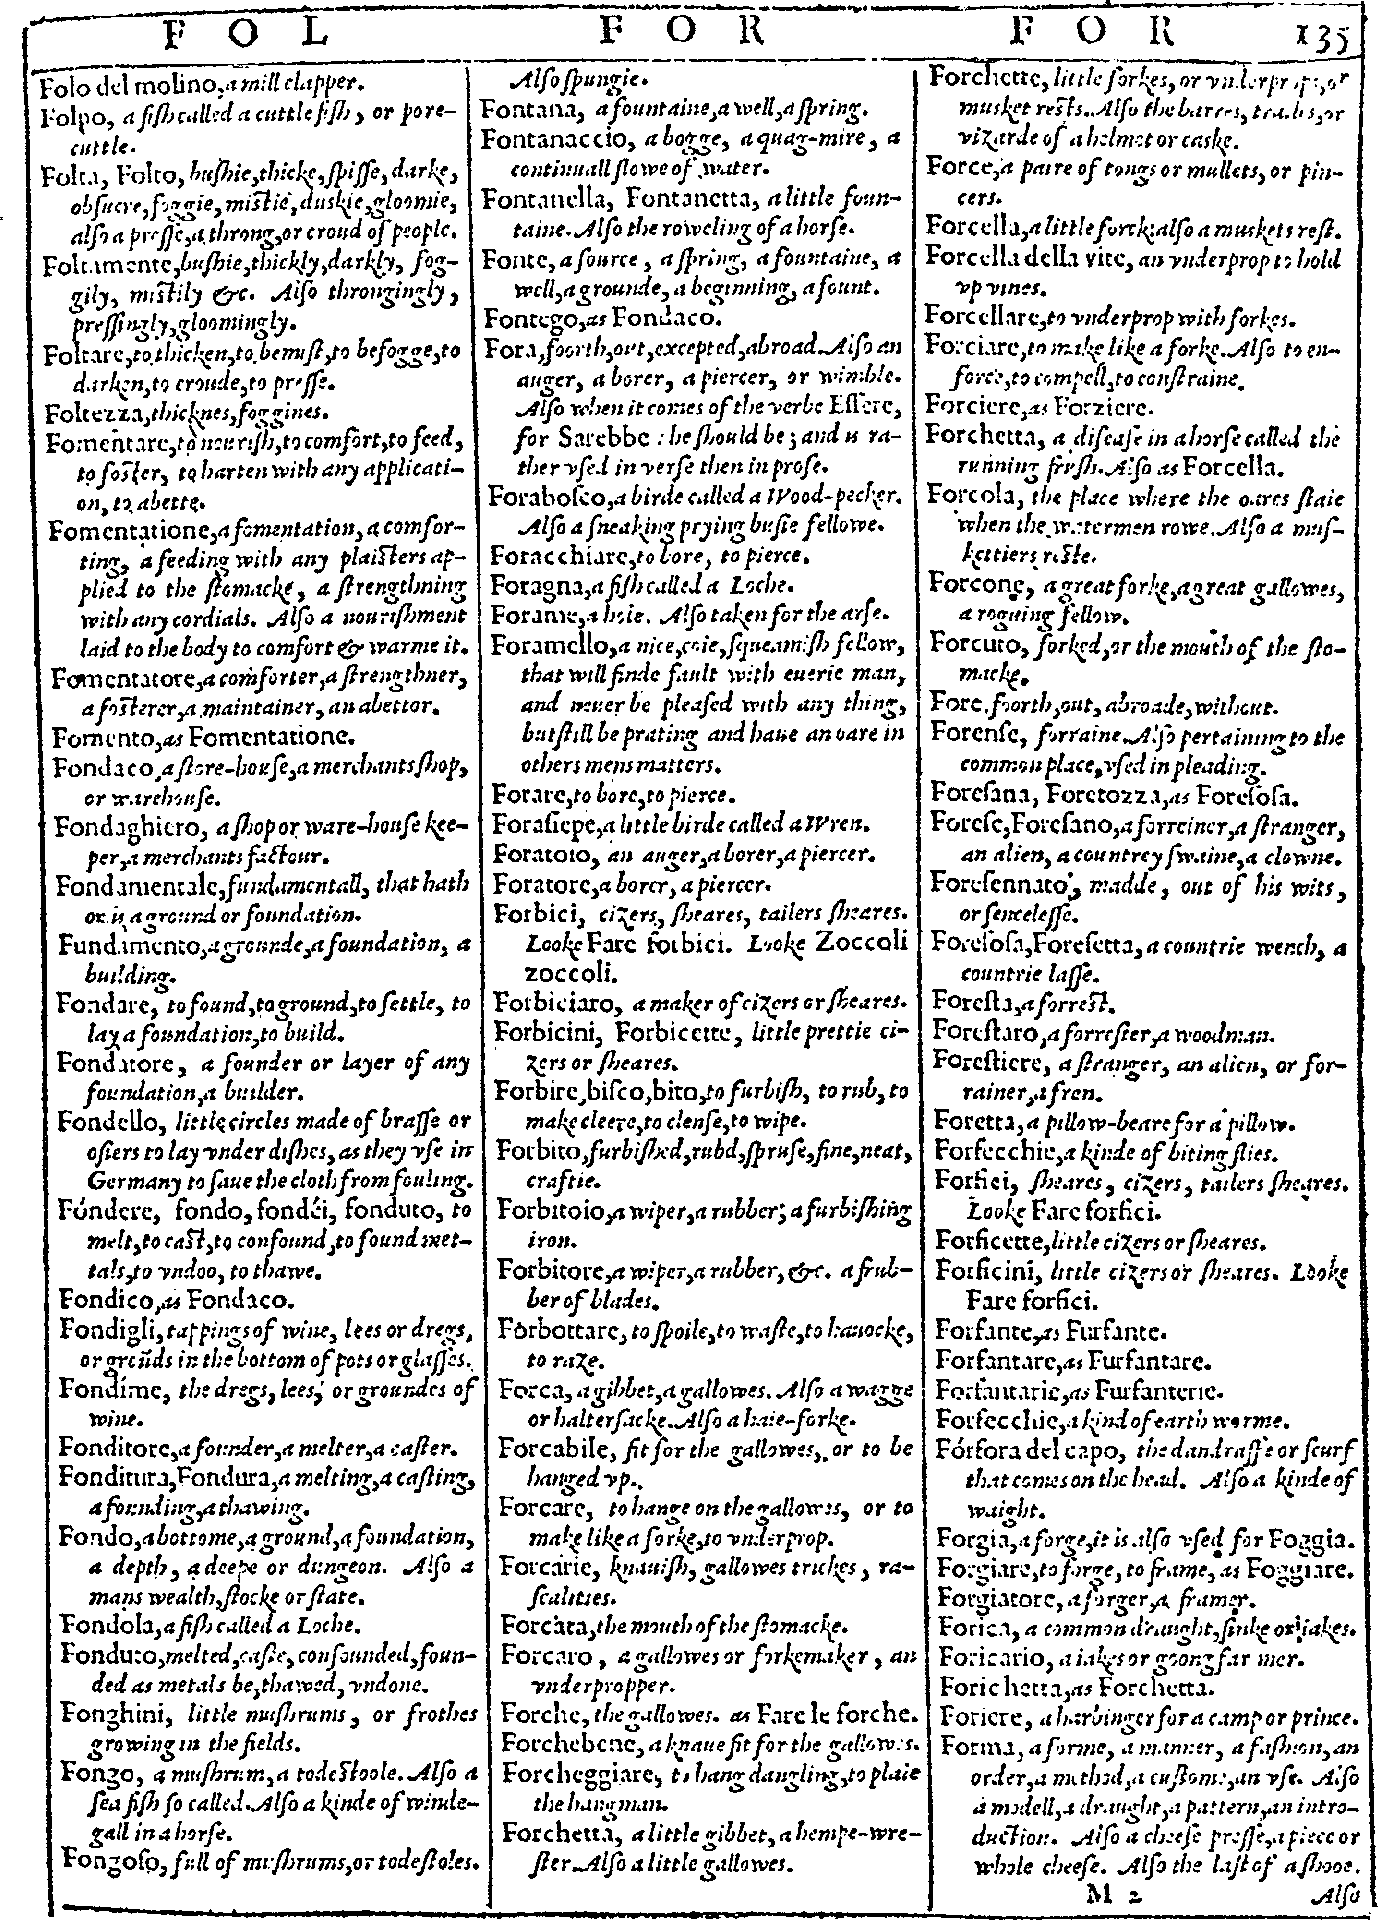 F O L F O R F O R 135
Folo del molino, a mill clapper.
Folpo, a fish called a cuttle fish, or pore-
cuttle.
Folta, Folto, bushie, thicke, spisse, darke,
obscure, foggie, mistie, duskie, gloomie,
also a presse, a throng, or croud of people.
Foltamente, bushie, thickly, darkly, fog-
gily, mistily &c. Also throngingly,
pressingly, gloomingly.
Foltare, to thicken, to bemist, to befogge, to
darken, to croude, to presse.
Foltezza, thicknes, foggines.
Fomentare, to nourish, to comfort, to feed,
to foster, to harten with any applicati-
on, to abette.
Fomentatione, a fomentation, a comfor-
ting, a feeding with any plaisters ap-
plied to the stomacke, a strengthning
with any cordials. Also a nourishment
laid to the body to comfort & warme it.
Fomentatore, a comforter, a strengthner,
a fosterer, a maintainer, an abettor.
Fomento, as Fomentatione.
Fondaco, a store-house, a merchants shop,
or warehouse.
Fondaghiero, a shop or ware-house kee-
per, a merchants factour.
Fondamentale, fundamentall, that hath
or is a ground or foundation.
Fundamento, a grounde, a foundation, a
building.
Fondare, to found, to ground, to settle, to
lay a foundation, to build.
Fondatore, a founder or layer of any
foundation, a builder.
Fondello, little circles made of brasse or
osiers to lay vnder dishes, as they vse in
Germany to saue the cloth from fouling.
Fóndere, fondo, fondéi, fonduto, to
melt, to cast, to confound, to found met-
tals, to vndoo, to thawe.
Fondico, as Fondaco.
Fondigli, tappings of wine, lees or dregs,
or groũds in the bottom of pots or glasses.
Fondime, the dregs, lees, or groundes of
wine.
Fonditore, a founder, a melter, a caster.
Fonditura, Fondura, a melting, a casting,
a founding, a thawing.
Fondo, a bottome, a ground, a foundation,
a depth, a deepe or dungeon. Also a
mans wealth, stocke or state.
Fondola, a fish called a Loche.
Fonduto, melted, caste, confounded, foun-
ded as metals be, thawed, vndone.
Fonghini, little mushrums, or frothes
growing in the fields.
Fongo, a mushrum, a todestoole. Also a
sea fish so called. Also a kinde of winde-
gall in a horse.
Fongoso, full of mushrums, or todestoles.
Also spungie.
Fontana, a fountaine, a well, a spring.
Fontanaccio, a bogge, a quag-mire, a
continuall flowe of water.
Fontanella, Fontanetta, a little foun-
taine. Also the roweling of a horse.
Fonte, a source, a spring, a fountaine, a
well, a grounde, a beginning, a fount.
Fontego, as Fondaco.
Fora, foorth, out, excepted, abroad. Also an
auger, a borer, a piercer, or wimble.
Also when it comes of the verbe Essere,
for Sarebbe: he should be; and is ra-
ther vsed in verse then in prose.
Forabosco, a birde called a Wood-pecker.
Also a sneaking prying busie fellowe.
Foracchiare, to bore, to pierce.
Foragna, a fish called a Loche.
Forame, a hole. Also taken for the arse.
Foramello, a nice, coie, squeamish fellow,
that will finde fault with euerie man,
and neuer be pleased with any thing,
but still be prating and haue an oare in
others mens matters.
Forare, to bore, to pierce.
Forasiepe, a little birde called a Wren.
Foratoio, an auger, a borer, a piercer.
Foratore, a borer, a piercer.
Forbici, cizers, sheares, tailers sheares.
Looke Fare forbici. Looke Zoccoli
zoccoli.
Forbiciaro, a maker of cizers or sheares.
Forbicini, Forbicette, little prettie ci-
zers or sheares.
Forbire, bisco, bito, to furbish, to rub, to
make cleere, to clense, to wipe.
Forbito, furbished, rubd, spruse, fine, neat,
craftie.
Forbitoio, a wiper, a rubber; a furbishing
iron.
Forbitore, a wiper, a rubber, &c. a frub-
ber of blades.
Forbottare, to spoile, to waste, to hauocke,
to raze.
Forca, a gibbet, a gallowes. Also a wagge
or haltersacke. Also a haie-forke.
Forcabile, fit for the gallowes, or to be
hanged vp.
Forcare, to hange on the gallowes, or to
make like a forke, to vnderprop.
Forcarie, knauish, gallowes trickes, ra-
scalities.
Forcata, the mouth of the stomacke.
Forcaro, a gallowes or forkemaker, an
vnderpropper.
Forche, the gallowes. as Fare le forche.
Forchebene, a knaue fit for the gallowes.
Forcheggiare, to hang dangling, to plaie
the hangman.
Forchetta, a little gibbet, a hempe-wre-
ster. Also a little gallowes.
Forchette, little forkes, or vnderprops, or
musket rests. Also the barres, trailes, or
vizarde of a helmet or caske.
Force, a paire of tongs or mullets, or pin-
cers.
Forcella, a little forck: also a muskets rest.
Forcella della vite, an vnderprop to hold
vp vines.
Forcellare, to vnderprop with forkes.
Forciare, to make like a forke. Also to en-
force, to compell, to constraine.
Forciere, as Forziere.
Forchetta, a disease in a horse called the
running frush. Also as Forcella.
Forcola, the place where the oares staie
when the watermen rowe. Also a mus-
kettiers reste.
Forcone, a great forke, a great gallowes,
a roguing fellow.
Forcuto, forked, or the mouth of the sto-
macke.
Fore, foorth, out, abroade, without.
Forense, forraine. Also pertaining to the
common place, vsed in pleading.
Foresana, Foretozza, as Foresosa.
Forese, Foresano, a forreiner, a stranger,
an alien, a countrey swaine, a clowne.
Foresennato, madde, out of his wits,
or sencelesse.
Foresosa, Foresetta, a countrie wench, a
countrie lasse.
Foresta, a forrest.
Forestaro, a forrester, a woodman.
Forestiere, a stranger, an alien, or for-
rainer, a fren.
Foretta, a pillow-beare for a pillow.
Forfecchie, a kinde of biting flies.
Forfici, sheares, cizers, tailers sheares.
Looke Fare forfici.
Forficette, little cizers or sheares.
Forficini, little cizers or sheares. Looke
Fare forfici.
Forfante, as Furfante.
Forfantare, as Furfantare.
Forfantarie, as Furfanterie.
Forfecchie, a kind of earth worme.
Fórfora del capo, the dandraffe or scurf
that comes on the head. Also a kinde of
waight.
Forgia, a forge, it is also vsed for Foggia.
Forgiare, to forge, to frame, as Foggiare.
Forgiatore, a forger, a framer.
Forica, a common draught, sinke or iakes.
Foricario, a iakes or goong farmer.
Forichetta, as Forchetta.
Foriere, a harbinger for a camp or prince.
Forma, a forme, a manner, a fashion, an
order, a method, a custome, an vse. Also
a modell, a draught, a pattern, an intro-
duction. Also a cheese presse, a piece or
whole cheese. Also the last of a shooe.
M 2 Also